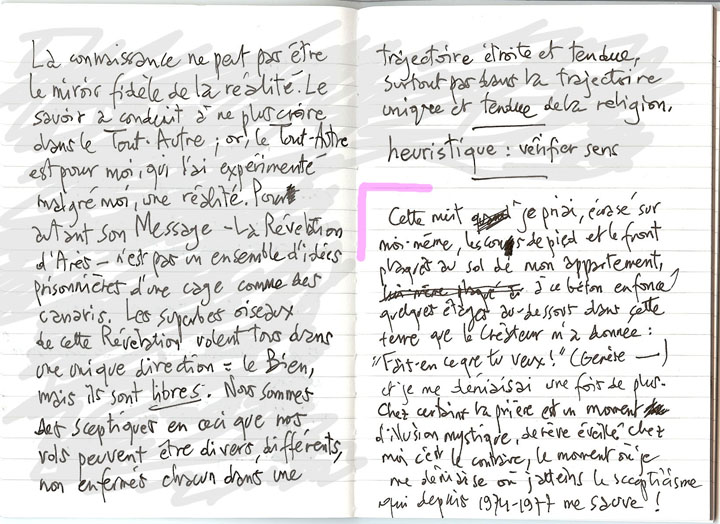 La connaissance ne peut pas être
le miroir fidèle de la réalité. Le
savoir a conduit à ne plus croire
dans le Tout-Autre ; or, le Tout-Autre
est pour moi, qui l'ai expérimenté
malgré moi, une réalité. Pour
autant son Message – La Révélation
d'Arès – n'est pas un ensemble d'idées
prisonnières d'une cage comme des
canaris. Les superbes oiseaux
de cette Révélation volent tous dans
une unique direction = le Bien,
mais ils sont libres. Nous sommes
des sceptiques en ceci que nos
vols peuvent être divers, différents,
non enfermés chacun dans une
trajectoire étroite et tendue,
surtout pas dans la trajectoire
unique et tendue de la religion.
heuristique : vérifier sens
Cette nuit je priai, écrasé sur
moi-même, les cous de pied et le front
plaqués au sol de mon appartement,
à ce béton enfoncé
quelques étages au-dessous dans cette
terre que le Créateur m'a donnée :
"Fais-en ce que tu veux !" (Genèse —)
et je me déniaisai une fois de plus.
Chez certains la prière est un moment
d'illusion mystique, de rêve éveillé chez
moi c'est le contraire, le moment où je
me déniaise où j'atteins le scepticisme
qui depuis 1974-1977 me sauve !